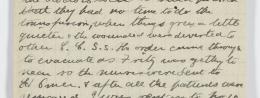 that they had no time to do the
transfusion, when things grew a little
quieter & the wounded were diverted to
other C.C.S.s. An order came through
to evacuate as Fritz was getting to
near so the nurses were sent to
St Omer, & after all the patients were